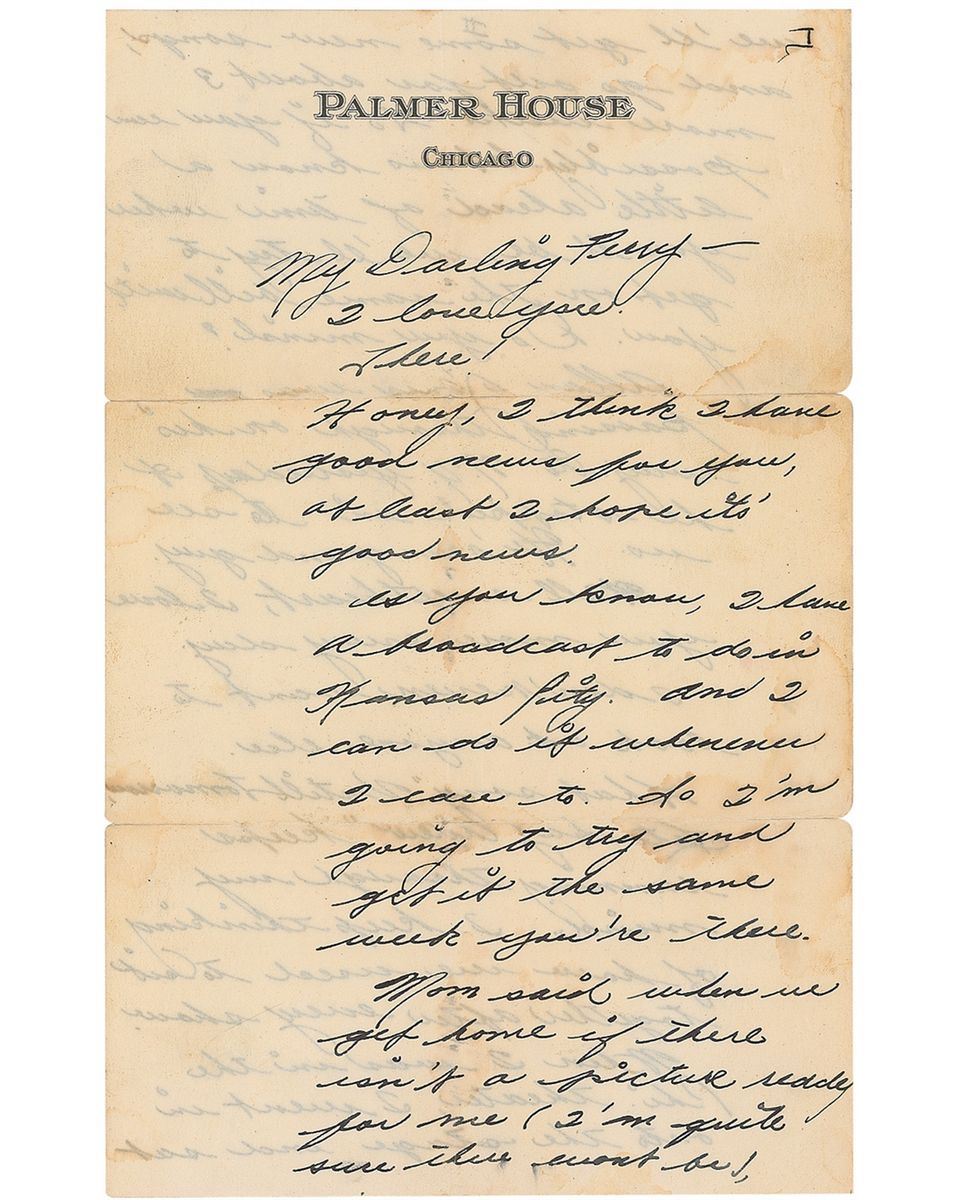 PALMER HOUSE
CHICAGO
My Darling Perry —
I love you.
There!
Honey, I think I have
good news for you,
at least I hope it's
good news.
As you know, I have
a broadcast to do in
Kansas City. And I
can do it whenever
I care to. So I'm
going to try and
get it the same
week you're there.
Mom said when we
get home if there
isn't a picture ready
for me (I'm quite
sure there wont be),